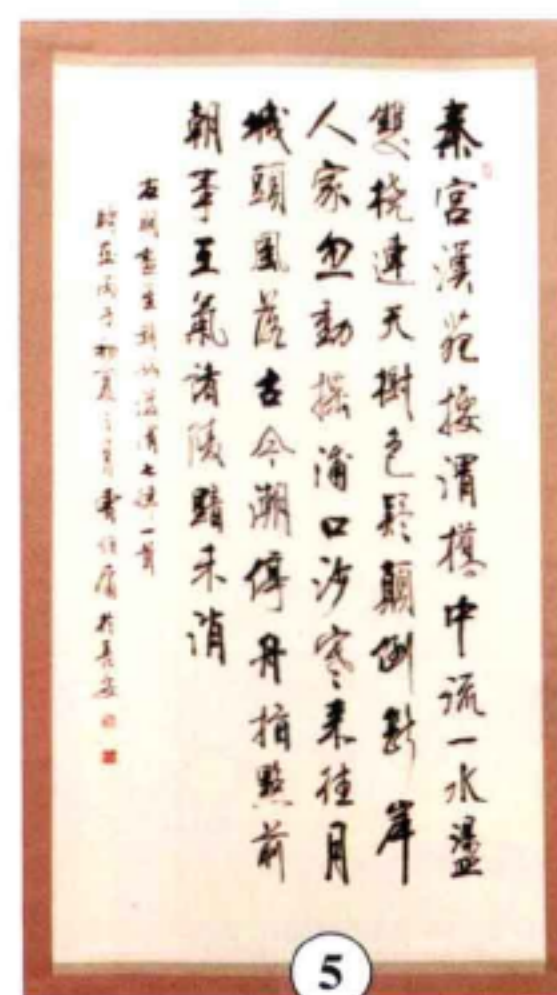 秦宮漢苑接渭橋中流一水盪
雙橈連天樹色髟顛倒斷岸
人家忽動搖浦口沙寒來往月
城頭風落古今潮停舟指點前
朝事王氣諸陵黯未消
右明盧生 渭七律一首
歲在丙子初夏之月 於長安
5